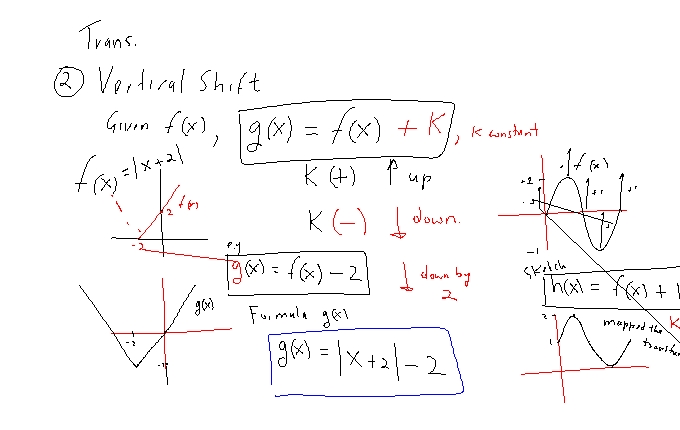 Trans.
② Vertical Shift
Given f(x), g(x) = f(x) + K, K constant
f(x) = |x+2|
K (+) ↑ up
K (−) ↓ down.
2 f(x)
-2
e.g
g(x) = f(x) − 2 ↓ down by 2
Formula g(x)
g(x) = |x+2| − 2
g(x)
-2
f(x)
+1
-1
Sketch
h(x) = f(x) + 1
K
2
1
mapped the